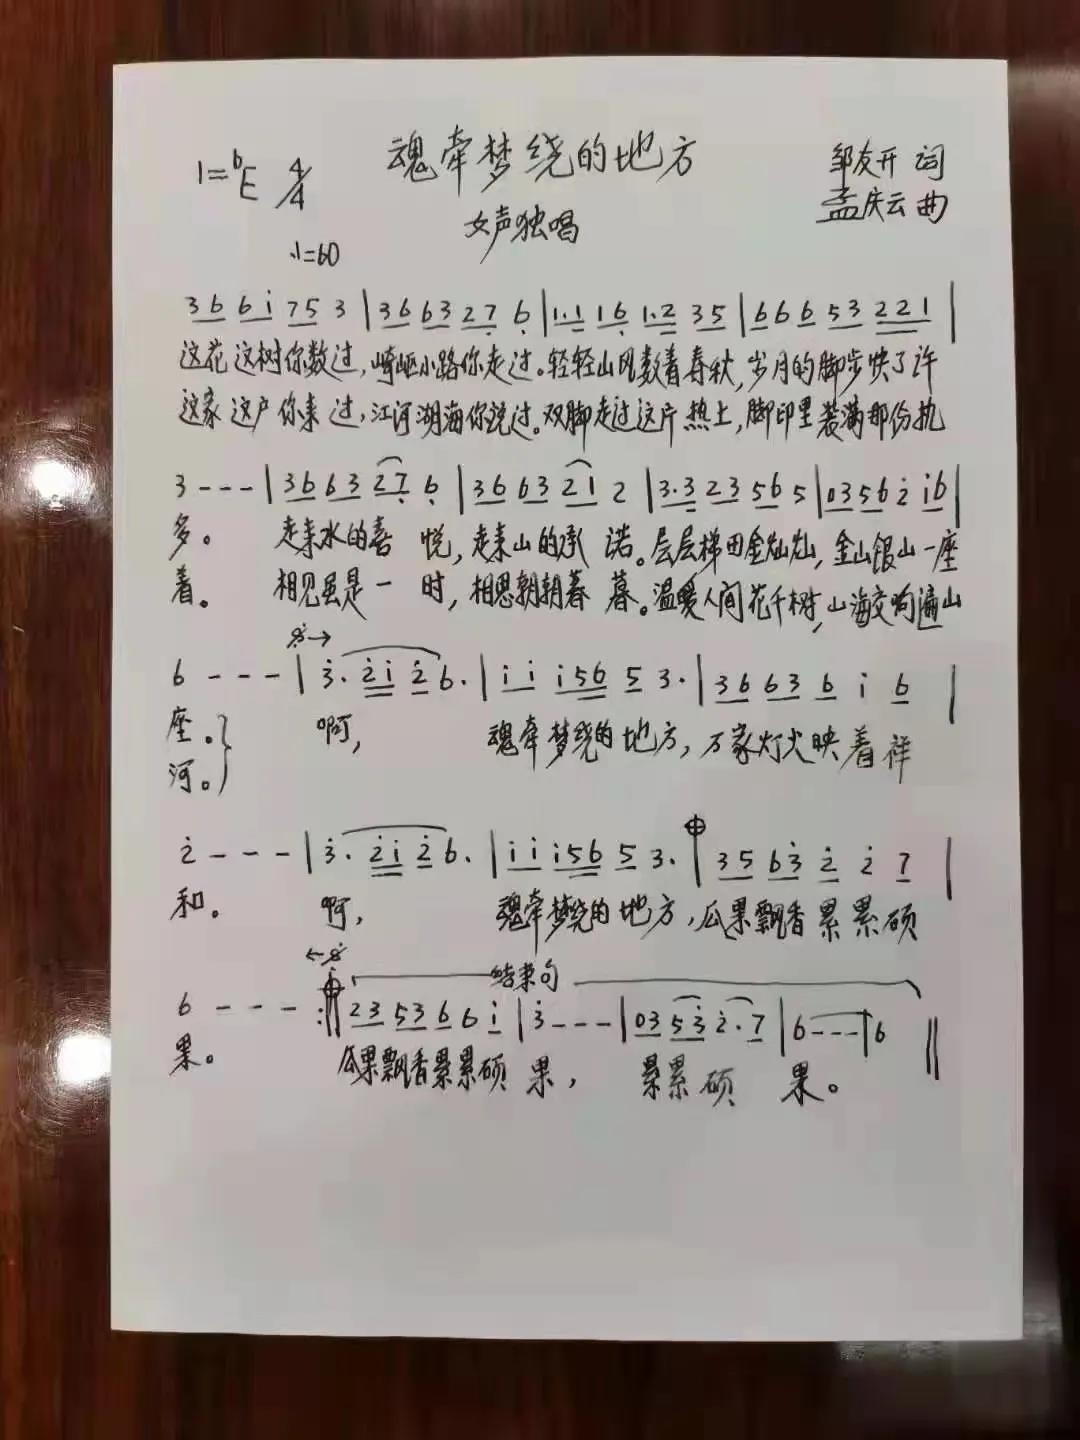 魂牵梦绕的地方
1=♭E 4/4
邹友开 词
女声独唱
孟庆云 曲
♩=60
3 6 6 i 7 5 3 | 3 6 6 3 2 7 6 | 1.1 1 6 1.2 3 5 | 6 6 6 5 3 2 2 1 |
这花这树你数过，崎岖小路你走过。轻轻山风数着春秋，岁月的脚步快了许
这家这户你来过，江河湖海你说过。双脚走过这片热土，脚印里装满那份执
3 - - - | 3 6 6 3 2 7 6 | 3 6 6 3 2 1 2 | 3.3 2 3 5 6 5 | 0 3 5 6 2 i 6 |
多。 走来水的喜悦，走来山的承诺。层层梯田金灿灿，金山银山一座
着。 相见虽是一时，相思朝朝暮暮。温暖人间花千树，山海交响遍山
6 - - - | 3. 2 i 2 6. | i i i 5 6 5 3. | 3 6 6 3 6 i 6 |
座。 啊， 魂牵梦绕的地方，万家灯火映着祥
河。
2 - - - | 3. 2 i 2 6. | i i i 5 6 5 3. | 3 5 6 3 2 2 7 |
和。 啊， 魂牵梦绕的地方，瓜果飘香累累硕
结束句
6 - - - :‖ 2 3 5 3 6 6 i | 3 - - - | 0 3 5 3 2. 7 | 6 - - - | 6 ‖
果。 瓜果飘香累累硕果， 累累硕果。